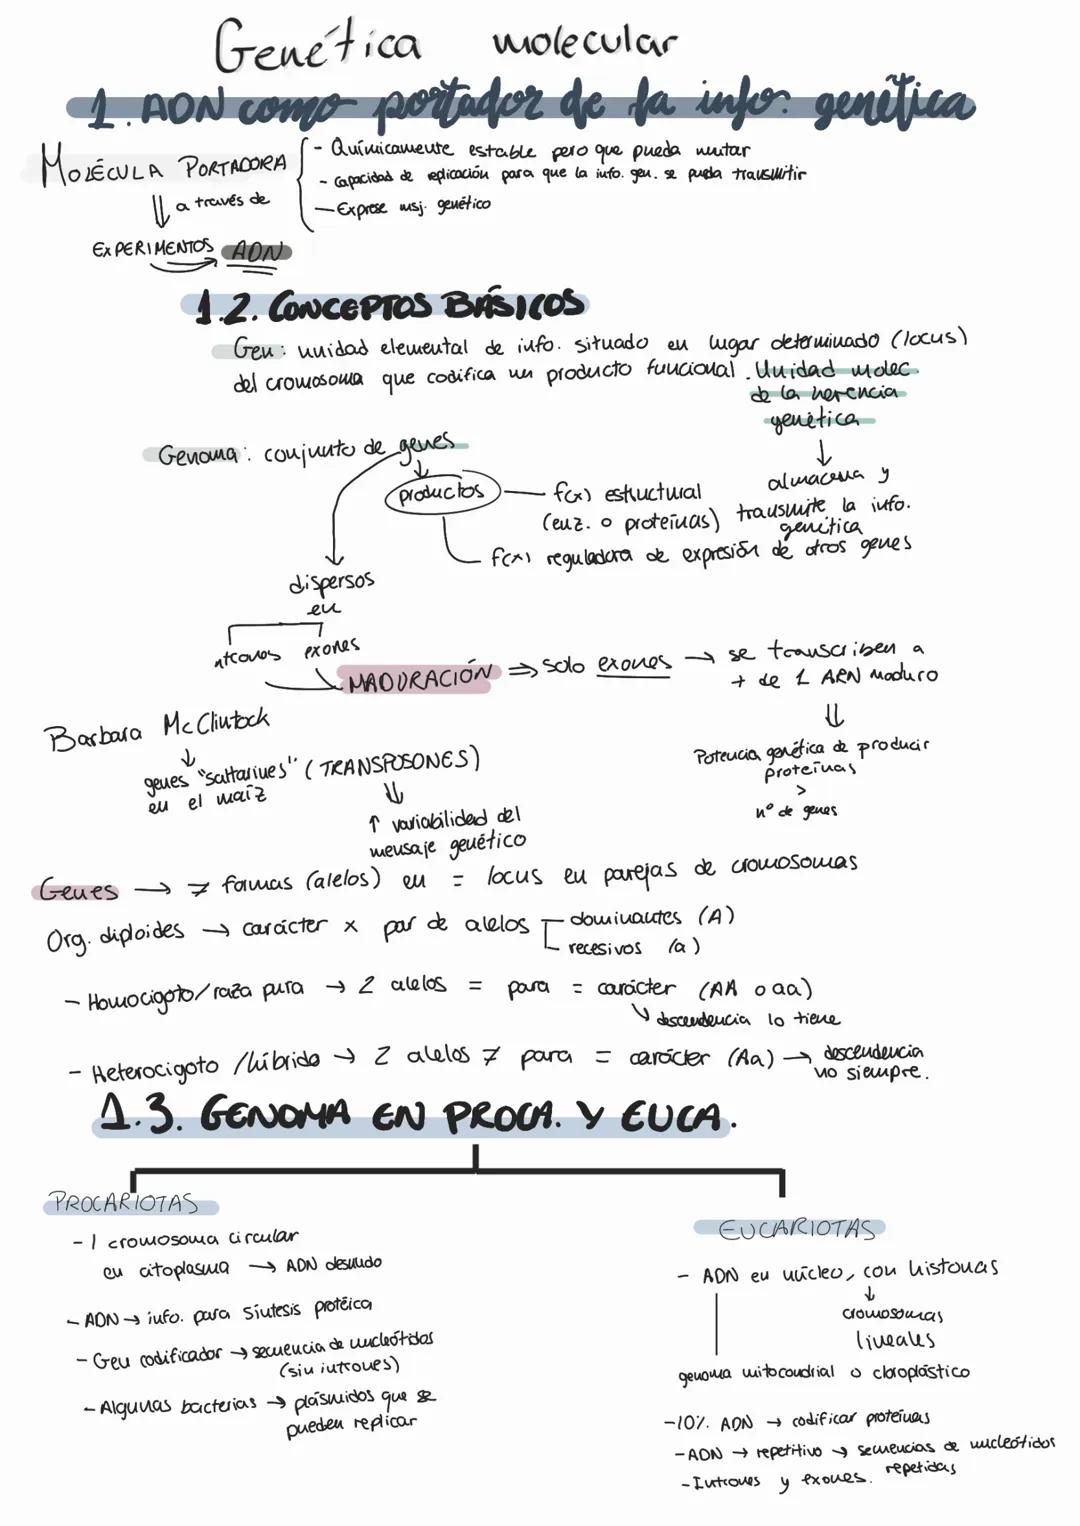 Genética molecular
1. ADN como portador de la info. genética
MOLÉCULA PORTADORA
- Químicamente estable pero que pueda mutar
- Capacidad de replicación para que la info. gen. se pueda transmitir
- Exprese msj. genético
a través de
EXPERIMENTOS ADN
1.2. CONCEPTOS BÁSICOS
Gen: unidad elemental de info. situado en lugar determinado (locus)
del cromosoma que codifica un producto funcional. Unidad molec.
de la herencia
genética
Genoma: conjunto de genes
almacena y
transmite la info.
genética
productos
f(x) estructural
(enz. o proteínas)
f(x) reguladora de expresión de otros genes
dispersos
en
intrones exones
MADURACIÓN ⇒ solo exones → se transcriben a
+ de 1 ARN maduro
⇓
Potencia genética de producir
proteínas
>
nº de genes
Barbara McClintock
↓
genes "saltarines" (TRANSPOSONES)
en el maíz
⇓
↑ variabilidad del
mensaje genético
Genes → ≠ formas (alelos) en = locus en parejas de cromosomas
Org. diploides → carácter x par de alelos
dominantes (A)
recesivos (a)
- Homocigoto/raza pura → 2 alelos = para = carácter (AA o aa)
descendencia lo tiene
- Heterocigoto /híbrido → 2 alelos ≠ para = carácter (Aa) → descendencia
no siempre.
1.3. GENOMA EN PROCA. Y EUCA.
PROCARIOTAS
- 1 cromosoma circular
en citoplasma → ADN desnudo
- ADN → info. para síntesis protéica
- Gen codificador → secuencia de nucleótidos
(sin intrones)
- Algunas bacterias → plásmidos que se
pueden replicar
EUCARIOTAS
- ADN en núcleo, con histonas
↓
cromosomas
lineales
genoma mitocondrial o cloroplástico
-10% ADN → codificar proteínas
- ADN → repetitivo → secuencias de nucleótidos
repetidas
- Intrones y exones.